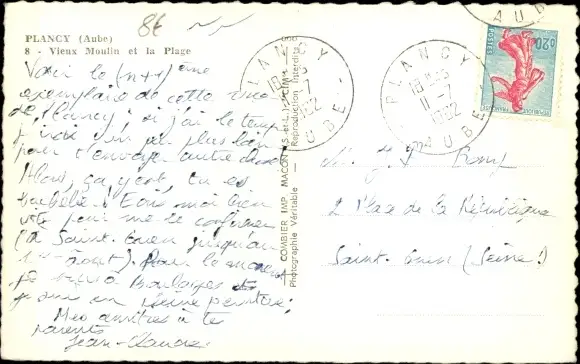 PLANCY (Aube)
8 - Vieux Moulin et la Plage
8€
Voici le (n+1)ème
exemplaire de cette vue
de Plancy : si j'ai le temps
j'irai un peu plus loin
pour t'envoyer autre chose
Alors, ça y est, tu es
bachelier ! Ecris moi bien
vite pour me le confirmer
(à Saint-Ouen jusqu'au
1er août). Pour le moment
je suis à Boulages et
je suis en pleine peinture;
Mes amitiés à tes
parents
Jean-Claude
COMBIER IMP. MACON (S.-et-L.) "CIM"
Photographie Véritable - Reproduction Interdite
PLANCY
18H45
11-7
1962
AUBE
PLANCY
18H45
11-7
1962
AUBE
AUBE
0,20
POSTES
REPUBLIQUE FRANÇAISE
M. J.P.
2 Place de la République
Saint-Ouen (Seine)